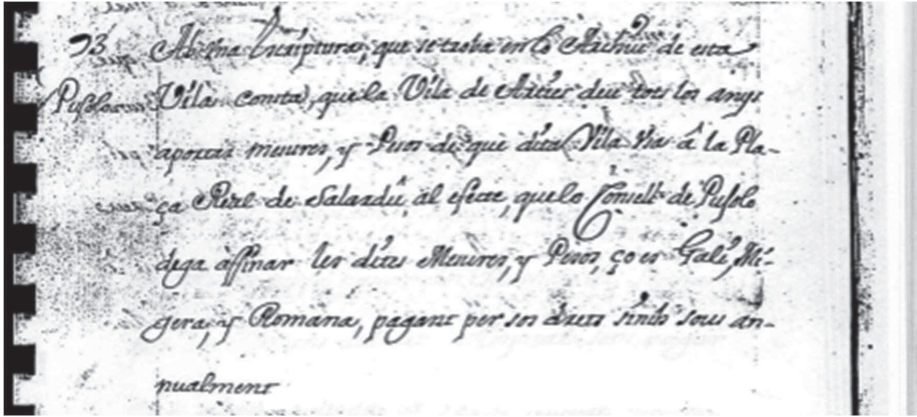 93 Ab una Escriptura, que se troba en lo Archiu de esta
Pujolo Vila consta, que la Vila de Arties deu tots los anys
aportar mesures, y Pesos de que dita Vila usa â la Pla-
ça Real de Salardú, al efecte, que lo Consell de Pujolo
dega âffinar les dites Mesures, y Pesos, ço es Galé, Mi-
gera, y Romana, pagant per sos drets sinch sous an-
nualment